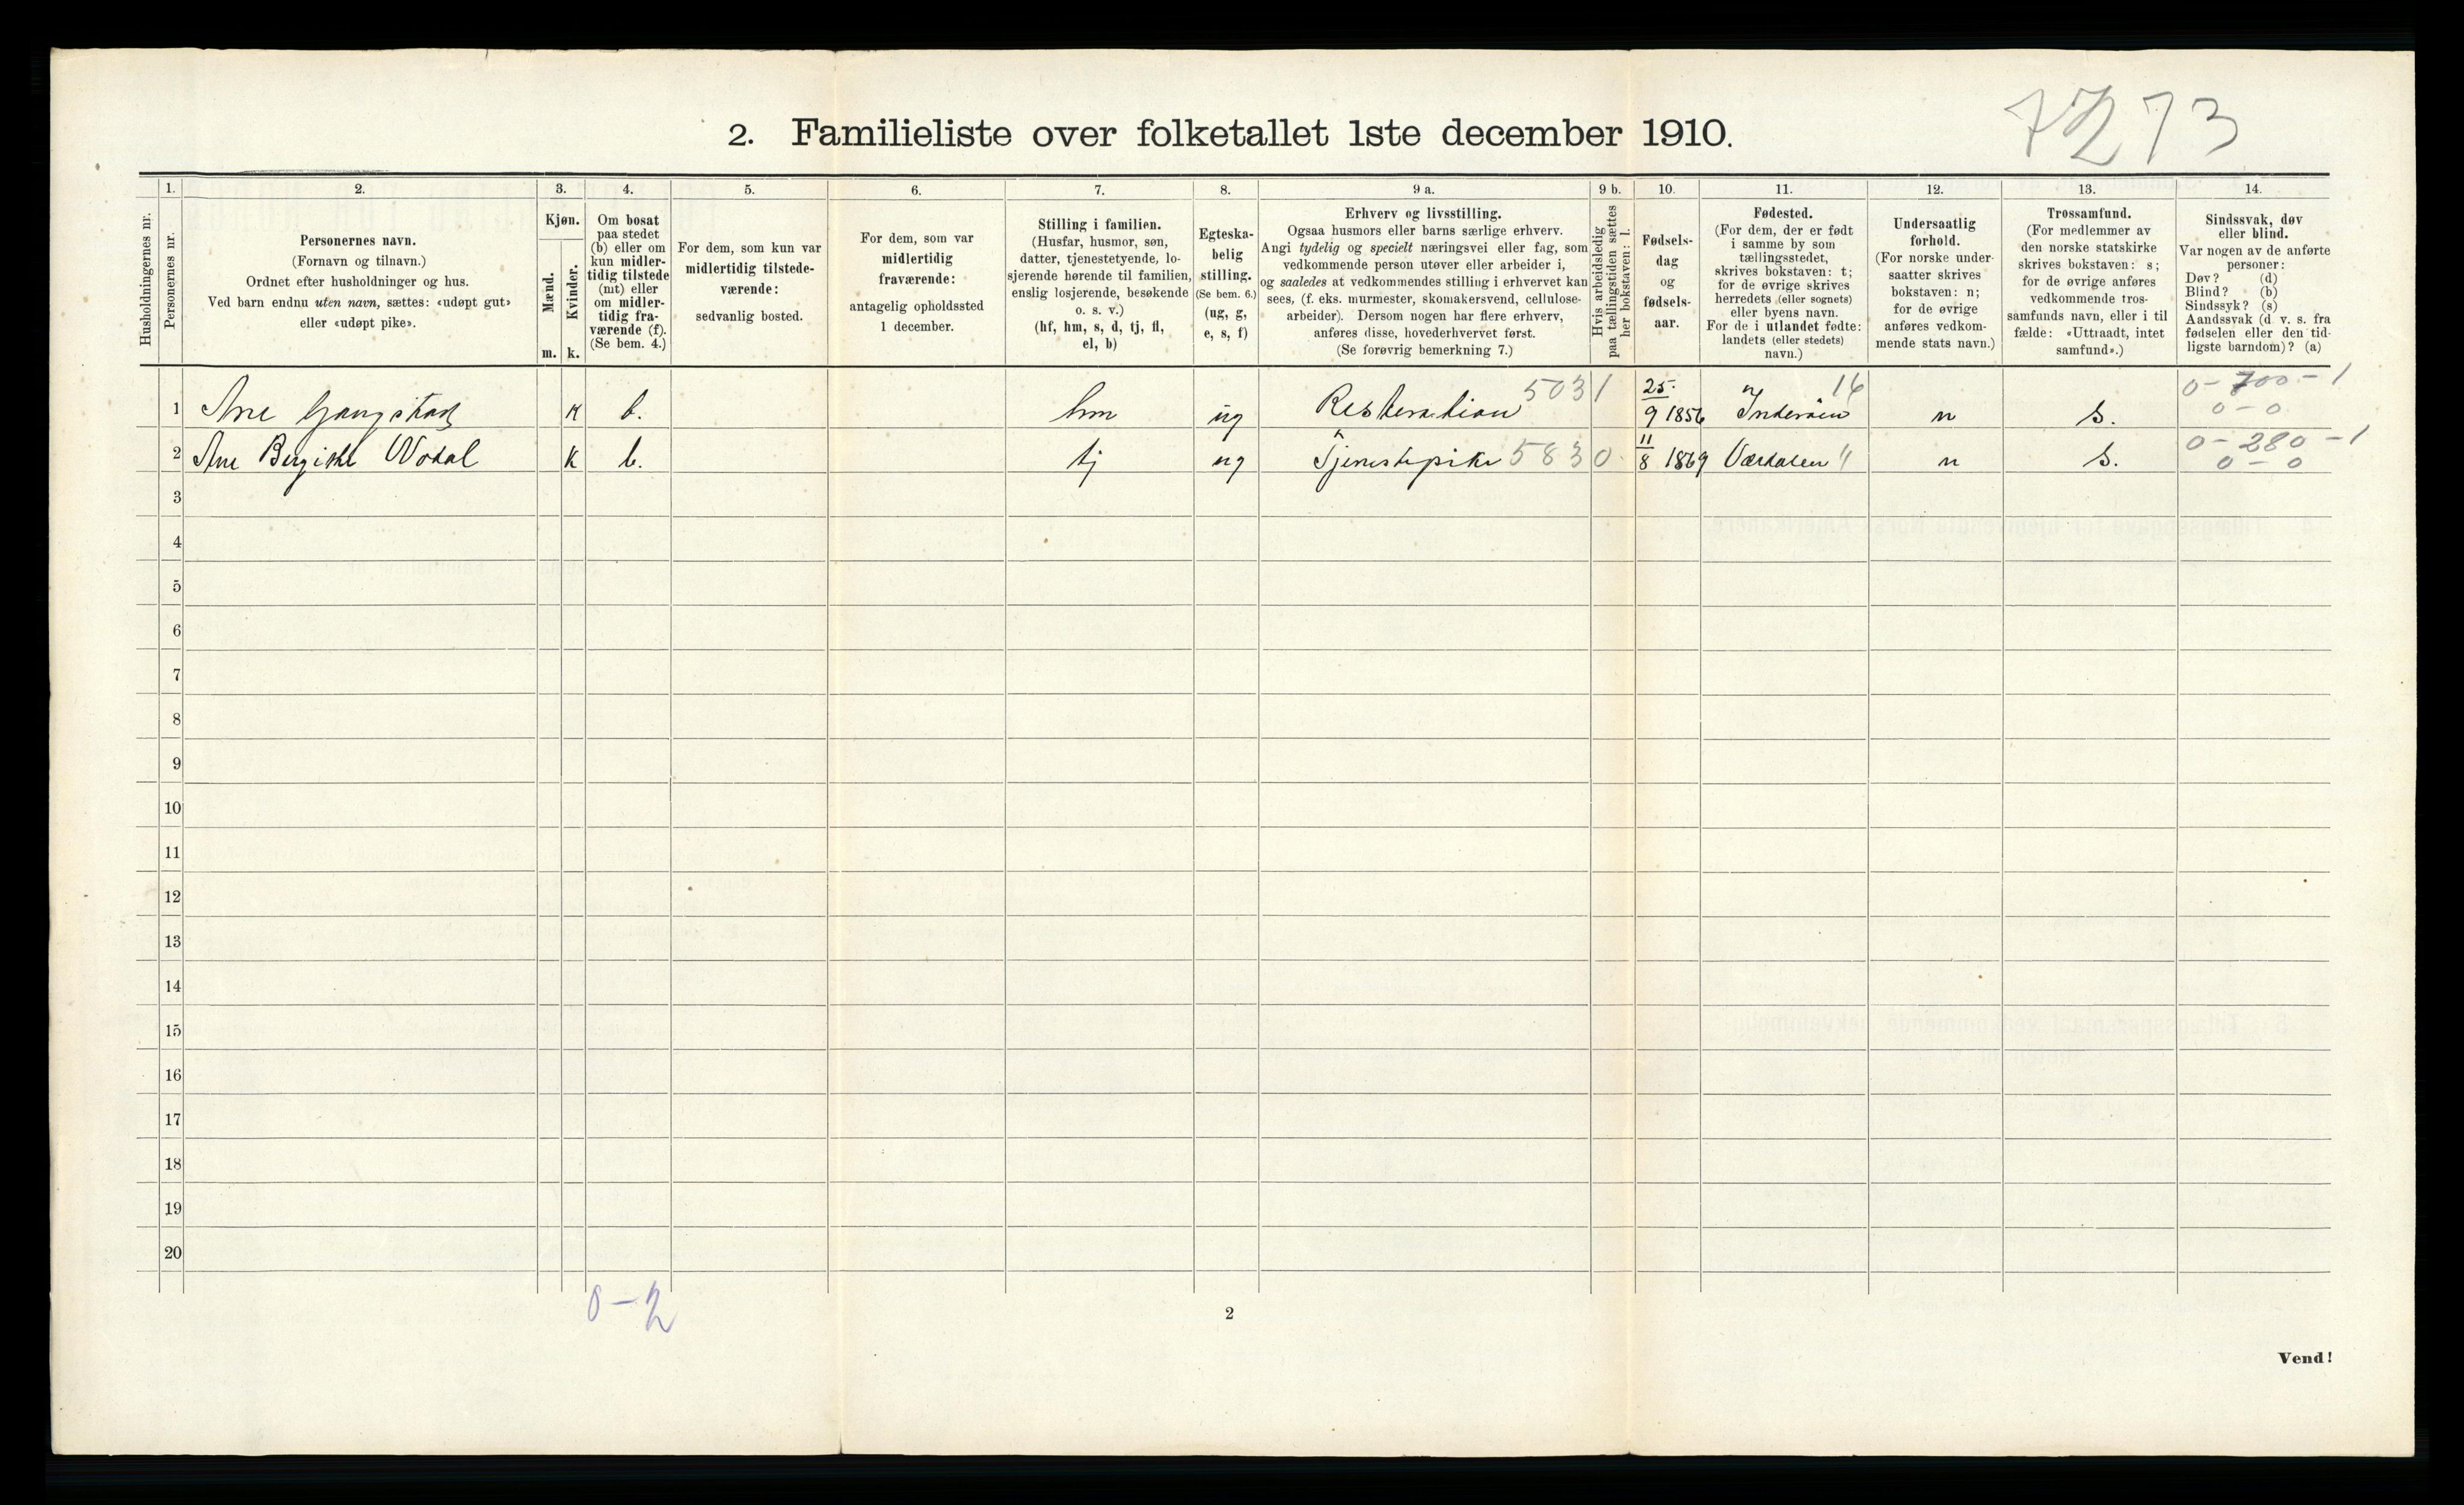 7273
2. Familieliste over folketallet 1ste december 1910.
Husholdningernes nr.
1.
Personernes nr.
2.
Personernes navn.
(Fornavn og tilnavn.)
Ordnet efter husholdninger og hus.
Ved barn endnu uten navn, sættes: «udøpt gut»
eller «udøpt pike».
3.
Kjøn.
Mænd.
Kvinder.
m. k.
4.
Om bosat
paa stedet
(b) eller om
kun midler-
tidig tilstede
(mt) eller
om midler-
tidig fra-
værende (f).
(Se bem. 4.)
5.
For dem, som kun var
midlertidig tilstede-
værende:
sedvanlig bosted.
6.
For dem, som var
midlertidig
fraværende:
antagelig opholdssted
1 december.
7.
Stilling i familien.
(Husfar, husmor, søn,
datter, tjenestetyende, lo-
sjerende hørende til familien,
enslig losjerende, besøkende
o. s. v.)
(hf, hm, s, d, tj, fl,
el, b)
8.
Egteska-
belig
stilling.
(Se bem. 6.)
(ug, g,
e, s, f)
9 a.
Erhverv og livsstilling.
Ogsaa husmors eller barns særlige erhverv.
Angi tydelig og specielt næringsvei eller fag, som
vedkommende person utøver eller arbeider i,
og saaledes at vedkommendes stilling i erhvervet kan
sees, (f. eks. murmester, skomakersvend, cellulose-
arbeider). Dersom nogen har flere erhverv,
anføres disse, hovederhvervet først.
(Se forøvrig bemerkning 7.)
9 b.
Hvis arbeidsledig
paa tællingstiden sættes
her bokstaven: l.
10.
Fødsels-
dag
og
fødsels-
aar.
11.
Fødested.
(For dem, der er født
i samme by som
tællingsstedet,
skrives bokstaven: t;
for de øvrige skrives
herredets (eller sognets)
eller byens navn.
For de i utlandet fødte:
landets (eller stedets)
navn.)
12.
Undersaatlig
forhold.
(For norske under-
saatter skrives
bokstaven: n;
for de øvrige
anføres vedkom-
mende stats navn.)
13.
Trossamfund.
(For medlemmer av
den norske statskirke
skrives bokstaven: s;
for de øvrige anføres
vedkommende tros-
samfunds navn, eller i til
fælde: «Uttraadt, intet
samfund».)
14.
Sindssvak, døv
eller blind.
Var nogen av de anførte
personer:
Døv? (d)
Blind? (b)
Sindssyk? (s)
Aandssvak (d. v. s. fra
fødselen eller den tid-
ligste barndom)? (a)
1 Ane Gangstad K b. hm ug Restoration 5031 25/9 1856 Inderøen 16 n s. 0-700-1 0-0
2 Ane Bergitte Wodal K b. tj ug Tjenestepike 5830 11/8 1869 Værdalen " n s. 0-280-1 0-0
3
4
5
6
7
8
9
10
11
12
13
14
15
16
17
18
19
20
0-2
2
Vend!